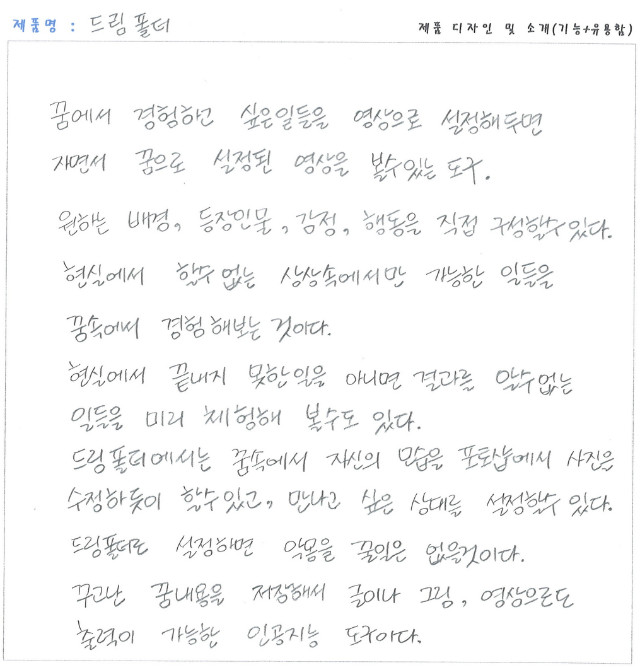 제품명 : 드림 폴더
제품 디자인 및 소개(기능+유용함)
꿈에서 경험하고 싶은일들을 영상으로 설정해두면
자면서 꿈으로 설정된 영상을 볼수있는 도구.
원하는 배경, 등장인물, 감정, 행동을 직접 구성할수있다.
현실에서 할수없는 상상속에서만 가능한 일들을
꿈속에서 경험해보는 것이다.
현실에서 끝내지 못한일을 아니면 결과를 알수없는
일들을 미리 체험해 볼수도 있다.
드림폴더에서는 꿈속에서 자신의 모습을 포토샵에서 사진을
수정하듯이 할수있고, 만나고 싶은 상대를 설정할수 있다.
드림폴더로 설정하면 악몽을 꿀일은 없을것이다.
꾸고난 꿈내용을 저장해서 글이나 그림, 영상으로도
출력이 가능한 인공지능 도구이다.